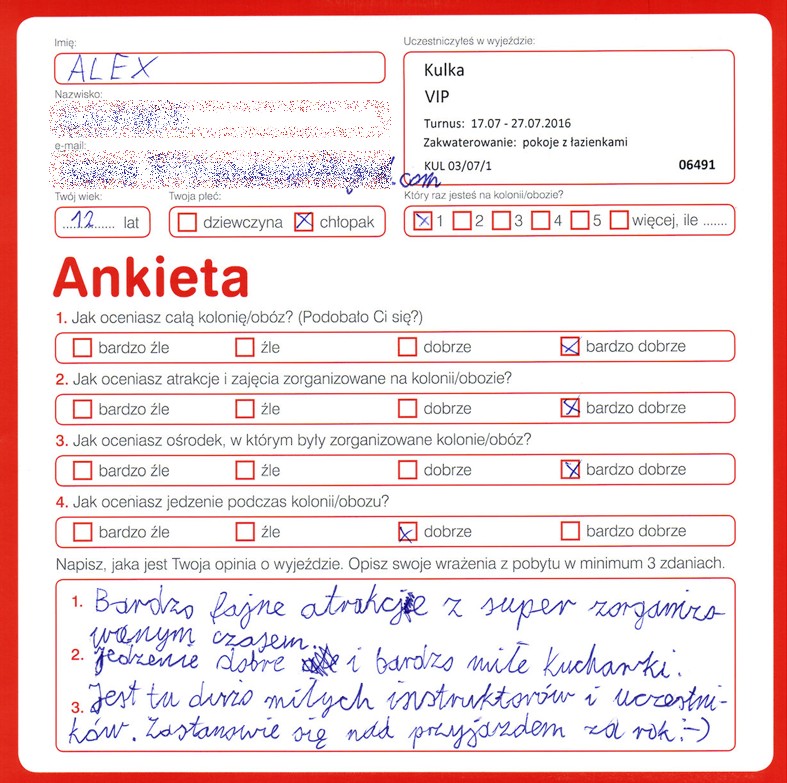 Imię:
Uczestniczyłeś w wyjeździe:
ALEX
Kulka
VIP
Nazwisko:
Turnus: 17.07 - 27.07.2016
Zakwaterowanie: pokoje z łazienkami
e-mail:
KUL 03/07/1 06491
.com
Twój wiek: Twoja płeć: Który raz jesteś na kolonii/obozie?
...12... lat dziewczyna chłopak 1 2 3 4 5 więcej, ile .......
Ankieta
1. Jak oceniasz całą kolonię/obóz? (Podobało Ci się?)
bardzo źle źle dobrze bardzo dobrze
2. Jak oceniasz atrakcje i zajęcia zorganizowane na kolonii/obozie?
bardzo źle źle dobrze bardzo dobrze
3. Jak oceniasz ośrodek, w którym były zorganizowane kolonie/obóz?
bardzo źle źle dobrze bardzo dobrze
4. Jak oceniasz jedzenie podczas kolonii/obozu?
bardzo źle źle dobrze bardzo dobrze
Napisz, jaka jest Twoja opinia o wyjeździe. Opisz swoje wrażenia z pobytu w minimum 3 zdaniach.
1. Bardzo fajne atrakcje z super zorganizo
wanym czasem.
2. Jedzenie dobre i bardzo miłe kucharki.
3. Jest tu dużo miłych instruktorów i uczestni-
ków. Zastanowie się nad przyjazdem za rok :-)